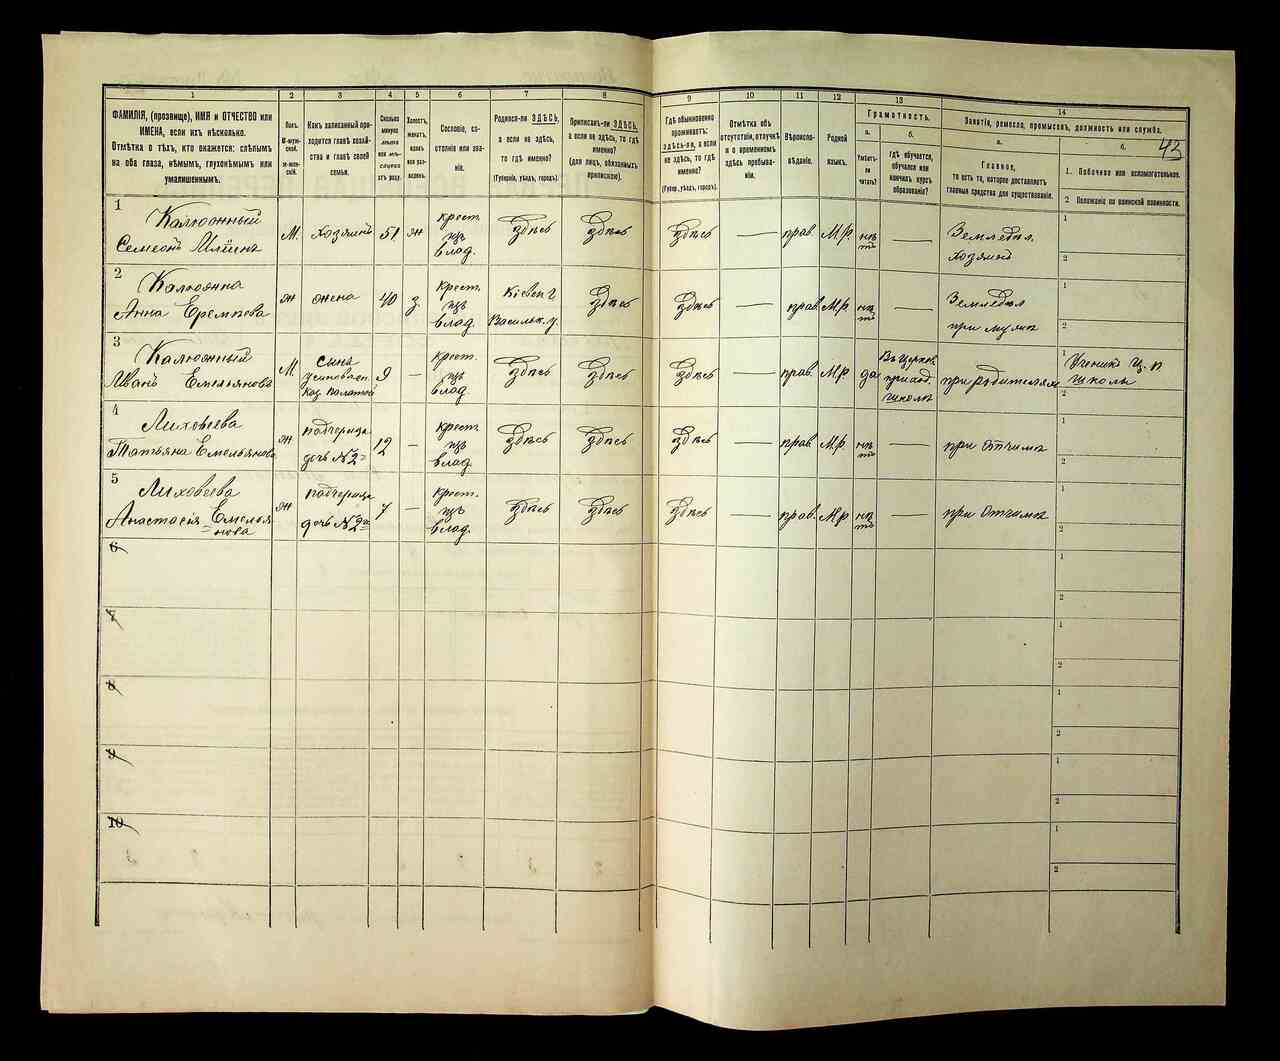 43
1
2
3
4
5
6
7
8
9
10
11
12
13
14
ФАМИЛІЯ, (прозвище), ИМЯ и ОТЧЕСТВО или
ИМЕНА, если ихъ нѣсколько.
Отмѣтка о тѣхъ, кто окажется: слѣпымъ
на оба глаза, нѣмымъ, глухонѣмымъ или
умалишеннымъ.
Полъ.
М-муж-
ской.
Ж-жен-
скій.
Какъ записанный при-
ходится главѣ хозяй-
ства и главѣ своей
семьи.
Сколько
минуло
лѣтъ
или мѣ-
сяцевъ
отъ роду.
Холостъ,
женатъ,
вдовъ
или раз-
веденъ.
Сословіе, со-
стояніе или зва-
ніе.
Родился-ли ЗДѢСЬ,
а если не здѣсь,
то гдѣ именно?
(Губернія, уѣздъ, городъ).
Приписанъ-ли ЗДѢСЬ,
а если не здѣсь, то гдѣ
именно?
(для лицъ, обязанныхъ
припискою).
Гдѣ обыкновенно
проживаетъ:
здѣсь-ли, а если
не здѣсь, то гдѣ
именно?
(Губер., уѣздъ, городъ).
Отмѣтка объ
отсутствіи, отлучкѣ
и о временномъ
здѣсь пребыва-
ніи.
Вѣроиспо-
вѣданіе.
Родной
языкъ.
Грамотность.
а.
Умѣетъ-
ли
читать?
б.
гдѣ обучается,
обучался или
кончилъ курсъ
образованія?
Занятіе, ремесло, промыселъ, должность или служба.
а.
Главное,
то есть то, которое доставляетъ
главныя средства для существованія.
б.
1. Побочное или вспомогательное.
2. Положеніе по воинской повинности.
1
Калюжный
Семеонъ Ильинъ
М.
хозяинъ
51
ж
крест.
изъ
влад.
здѣсь
здѣсь
здѣсь
—
прав.
М.Р.
нѣтъ
—
Земледѣл.
хозяинъ
1
2
2
Калюжна
Анна Еремѣева
ж
жена
40
з
крест.
изъ
влад.
Кіевск г
Васильк. у.
здѣсь
здѣсь
—
прав.
М.Р.
нѣтъ
—
Земледѣл
при мужѣ
1
2
3
Калюжный
Иванъ Емельяновъ
М.
сына
усыновлен.
Каз. Палатой
9
—
крест.
изъ
влад.
здѣсь
здѣсь
здѣсь
—
прав.
М.Р.
да
Въ церков.
приход.
школѣ
при родителяхъ
1
Ученикъ Ц. п
школы
2
4
Лиховѣева
Татьяна Емельянова
ж
падчерица
дочь № 2й
12
—
крест.
изъ
влад.
здѣсь
здѣсь
здѣсь
—
прав.
М.Р.
нѣтъ
—
при отчимѣ
1
2
5
Лиховѣева
Анастасія Емелья
нова
ж
падчерица
дочь № 2й
7
—
крест.
изъ
влад.
здѣсь
здѣсь
здѣсь
—
прав.
М.Р
нѣтъ
—
при отчимѣ
1
2
6
1
2
7
1
2
8
1
2
9
1
2
10
1
2